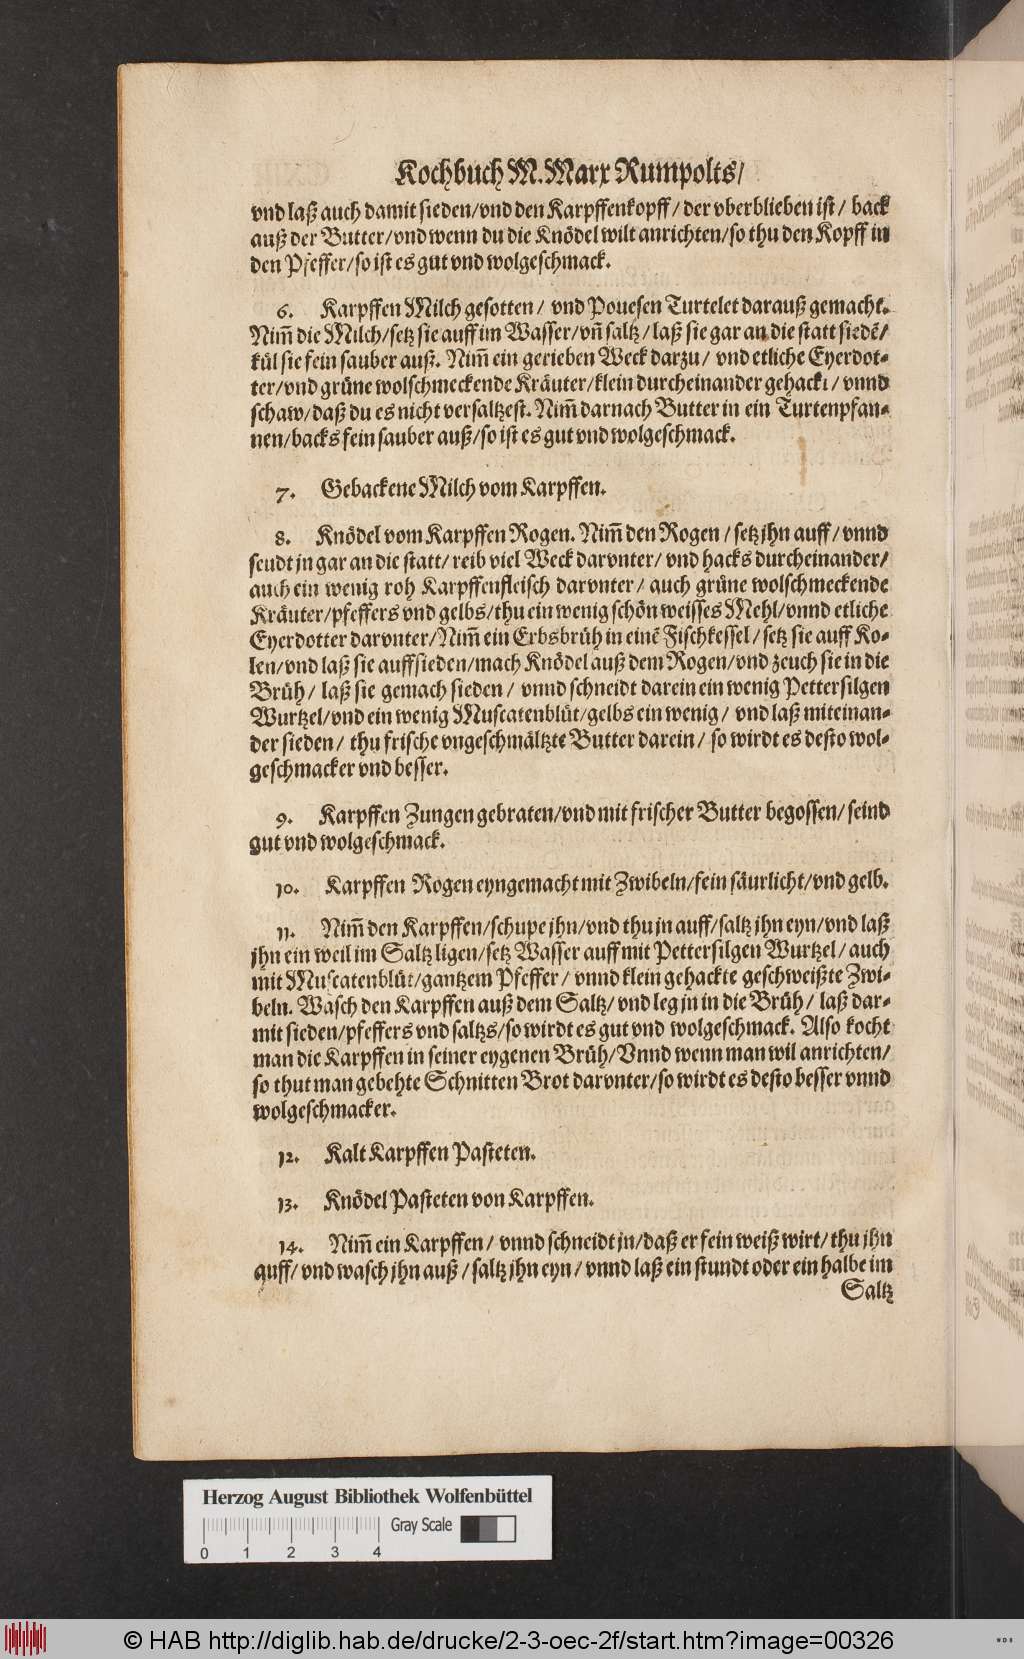 Kochbuch M. Marx Rumpolts/
vnd laß auch damit sieden/vnd den Karpffenkopff/ der vberblieben ist/ back
auß der Butter/vnd wenn du die Knödel wilt anrichten/so thu den Kopff in
den Pfeffer/so ist es gut vnd wolgeschmack.
6. Karpffen Milch gesotten/ vnd Pouesen Turtelet darauß gemacht.
Nim̃ die Milch/setz sie auff im Wasser/vñ saltz/ laß sie gar an die statt siedẽ/
kül sie fein sauber auß. Nim̃ ein gerieben Weck darzu/ vnd etliche Eyerdot-
ter/vnd grüne wolschmeckende Kräuter/klein durcheinander gehackt/ vnnd
schaw/daß du es nicht versaltzest. Nim̃ darnach Butter in ein Turtenpfan-
nen/backs fein sauber auß/so ist es gut vnd wolgeschmack.
7. Gebackene Milch vom Karpffen.
8. Knödel vom Karpffen Rogen. Nim̃ den Rogen/ setz jhn auff/ vnnd
seudt jn gar an die statt/ reib viel Weck darvnter/ vnd hacks durcheinander/
auch ein wenig roh Karpffenfleisch darvnter/ auch grüne wolschmeckende
Kräuter/pfeffers vnd gelbs/thu ein wenig schön weisses Mehl/vnnd etliche
Eyerdotter darvnter/Nim̃ ein Erbsbrüh in einẽ Fischkessel/ setz sie auff Ko-
len/vnd laß sie auffsieden/mach Knödel auß dem Rogen/vnd zeuch sie in die
Brüh/ laß sie gemach sieden/ vnnd schneidt darein ein wenig Pettersilgen
Wurtzel/vnd ein wenig Muscatenblüt/gelbs ein wenig/ vnd laß miteinan-
der sieden/ thu frische vngeschmältzte Butter darein/ so wirdt es desto wol-
geschmacker vnd besser.
9. Karpffen Zungen gebraten/vnd mit frischer Butter begossen/ seind
gut vnd wolgeschmack.
10. Karpffen Rogen eyngemacht mit Zwibeln/fein säurlicht/vnd gelb.
11. Nim̃ den Karpffen/schupe jhn/vnd thu jn auff/saltz jhn eyn/vnd laß
jhn ein weil im Saltz ligen/setz Wasser auff mit Pettersilgen Wurtzel/ auch
mit Muscatenblüt/gantzem Pfeffer/ vnnd klein gehackte geschweißte Zwi-
beln. Wasch den Karpffen auß dem Saltz/ vnd leg jn in die Brüh/ laß dar-
mit sieden/pfeffers vnd saltzs/so wirdt es gut vnd wolgeschmack. Also kocht
man die Karpffen in seiner eygenen Brüh/Vnnd wenn man wil anrichten/
so thut man gebehte Schnitten Brot darvnter/so wirdt es desto besser vnnd
wolgeschmacker.
12. Kalt Karpffen Pasteten.
13. Knödel Pasteten von Karpffen.
14. Nim̃ ein Karpffen/ vnnd schneidt jn/daß er fein weiß wirt/ thu jhn
auff/ vnd wasch jhn auß/ saltz jhn eyn/ vnnd laß ein stundt oder ein halbe im
Saltz
Herzog August Bibliothek Wolfenbüttel
Gray Scale
0 1 2 3 4
© HAB http://diglib.hab.de/drucke/2-3-oec-2f/start.htm?image=00326